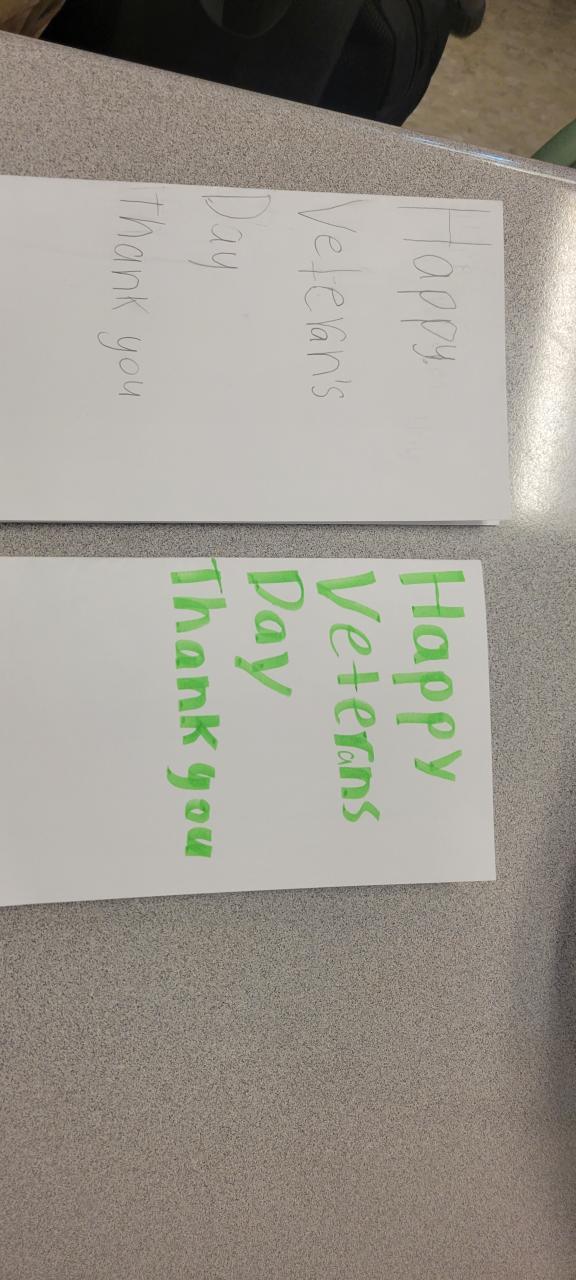 Happy
Veteran's
Day
Thank you
Happy
Veterans
Day
Thank you